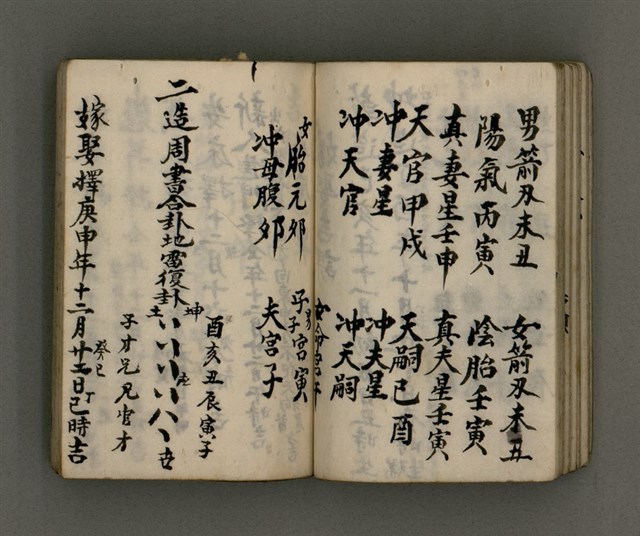 男箭刄未丑　女箭刄未丑
陽氣丙寅　陰胎壬寅
真妻星壬申　真夫星壬寅
天官甲戌　天嗣己酉
冲妻星　冲夫星
冲天官　冲天嗣
女胎元夘　男子宮寅
冲母腹夘　夫宮子
二造周書合卦地雷復卦
坤土
酉亥丑辰寅子
子才兄兄官才
嫁娶擇庚申年十二月廿二日巳時吉
癸巳　丁